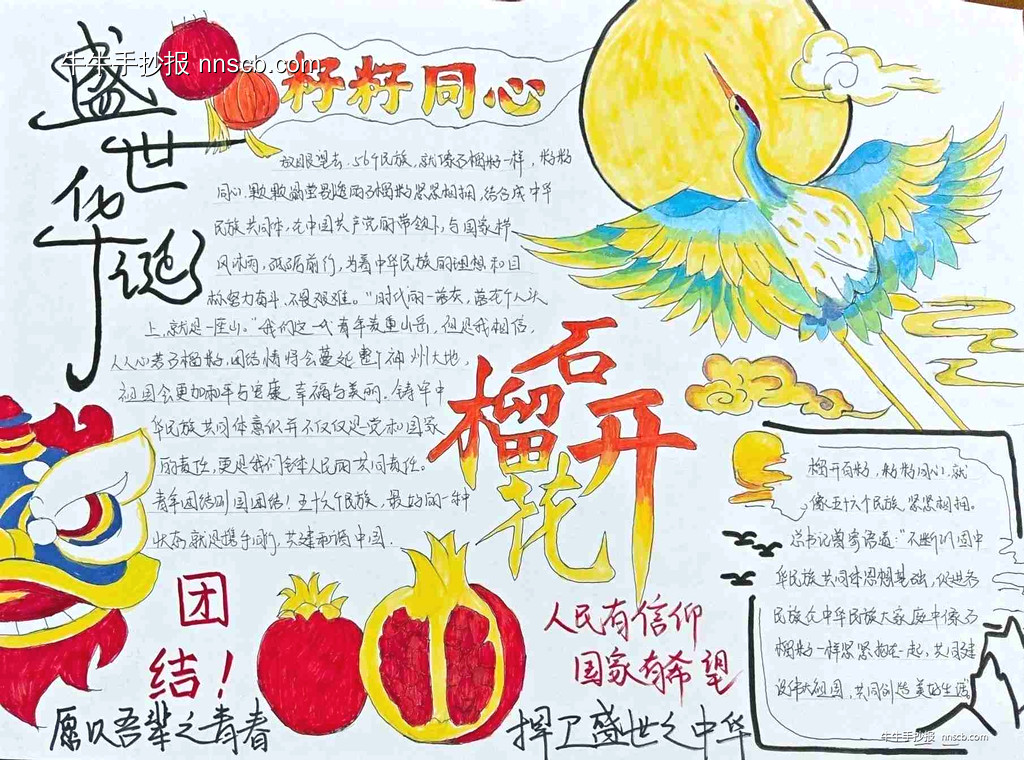 牛牛手抄报 nnscb.com
盛世华诞
籽籽同心
放眼望去，56个民族，就像石榴籽一样，籽籽
同心，颗颗晶莹剔透的石榴籽紧紧相拥，结合成中华
民族共同体，在中国共产党的带领下，与国家栉
风沐雨，砥砺前行，为着中华民族的理想和目
标努力奋斗，不畏艰难。“时代的一粒灰，落在个人头
上，就是一座山。”我们这一代青年着重山岳，但是我相信，
人人心若石榴籽，团结情将会蔓延整个神州大地，
祖国会更加和平与安康，幸福与美丽。铸牢中
华民族共同体意识并不仅仅是党和国家
的责任，更是我们全体人民的共同责任。
青年团结则国团结！五十六个民族，最好的一种
状态就是携手同行，共建和谐中国．
石榴花开
榴开百籽，籽籽同心，就
像五十六个民族紧紧相拥。
总书记曾寄语道：“不断巩固中
华民族共同体思想基础，促进各
民族在中华民族大家庭中像石
榴籽一样紧紧抱在一起，共同建
设伟大祖国，共同创造美好生活。
团
结！
人民有信仰
国家有希望
愿以吾辈之青春
捍卫盛世之中华
牛牛手抄报 nnscb.com